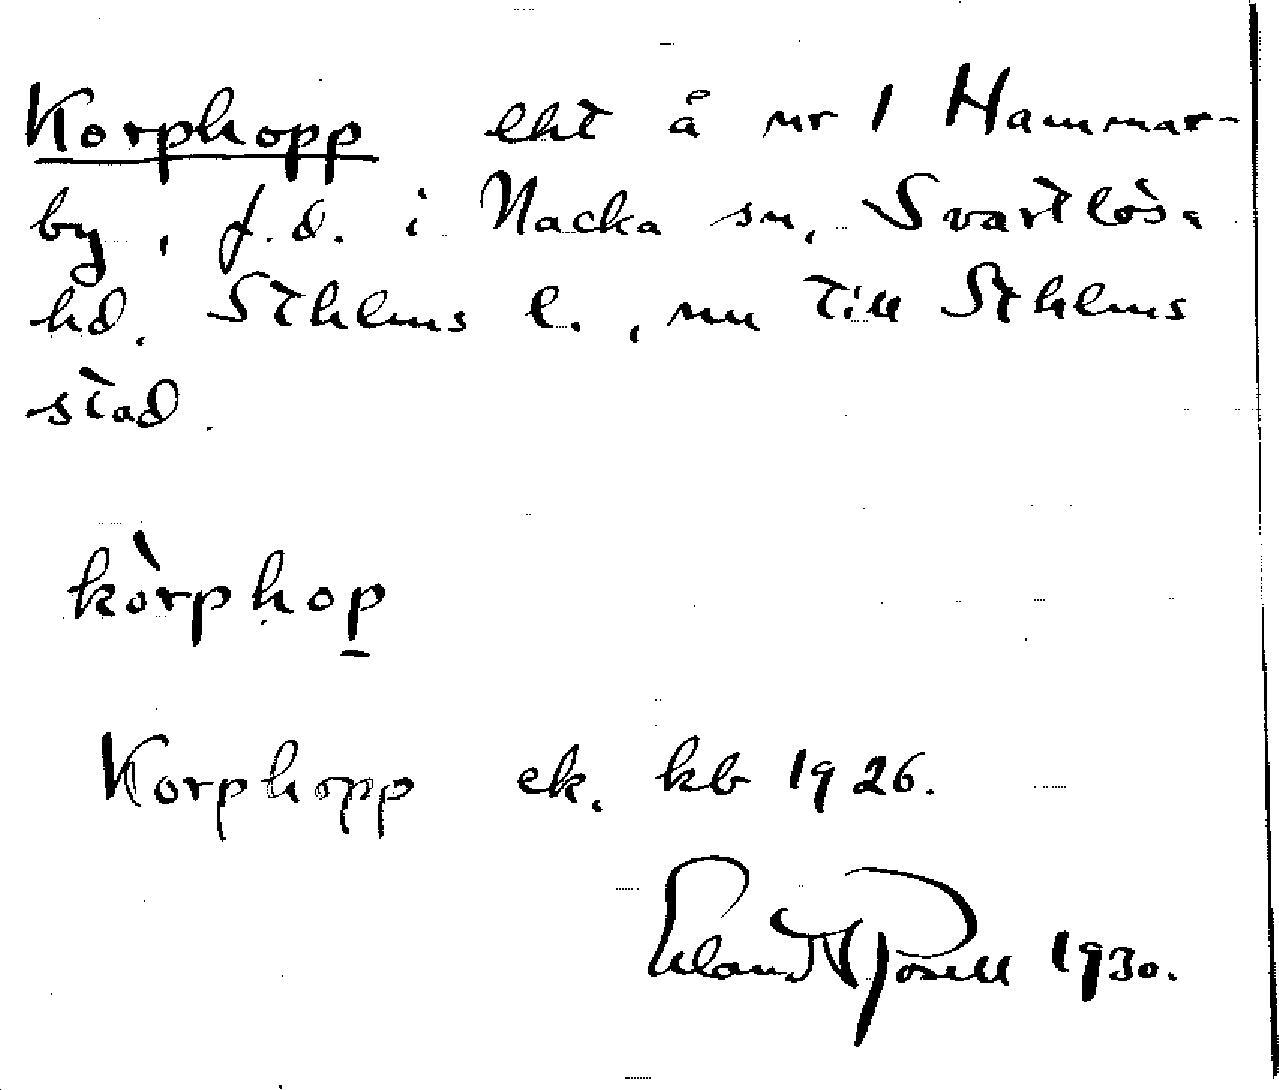 Korphopp eht å nr 1 Hammar-
by, f.d. i Nacka sn, Svartlös.
hd. Sthlms l., nu till Sthlms
stad.
kòrphop̲
Korphopp ek. kb 1926.
Erland Rosell 1930.